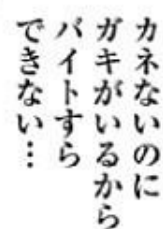 カネないのに
ガキがいるから
バイトすら
できない…